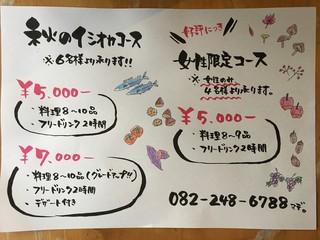 秋のイシオカコース
※ 6名様より承ります!!
¥5.000-
・料理8〜10品
・フリードリンク2時間
¥7.000-
・料理8〜10品(グレードアップ!!)
・フリードリンク2時間
・デザート付き
好評につき
女性限定コース
※ 女性のみ
4名様より承ります。
¥5.000-
・料理8〜9品
・フリードリンク2時間
082-248-6788マデ。